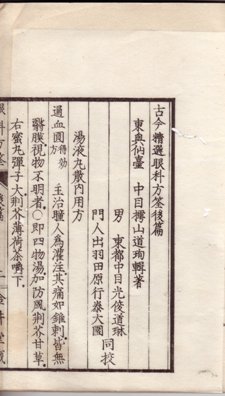 古今精選眼科方筌後篇
東奥仙臺 中目樗山道珣輯著
男 東都中目光俊道琳
門人出羽田原行泰大圜 同校
湯液丸散内用方
通血圓 得効 主治瞳人爲灌注其痛如錐刺。皆無
翳膜。視物不明者。○即四物湯。加防風荊芥甘草。
右蜜丸彈子大荊芥薄荷茶嚼下。
眼科方筌 後篇 一